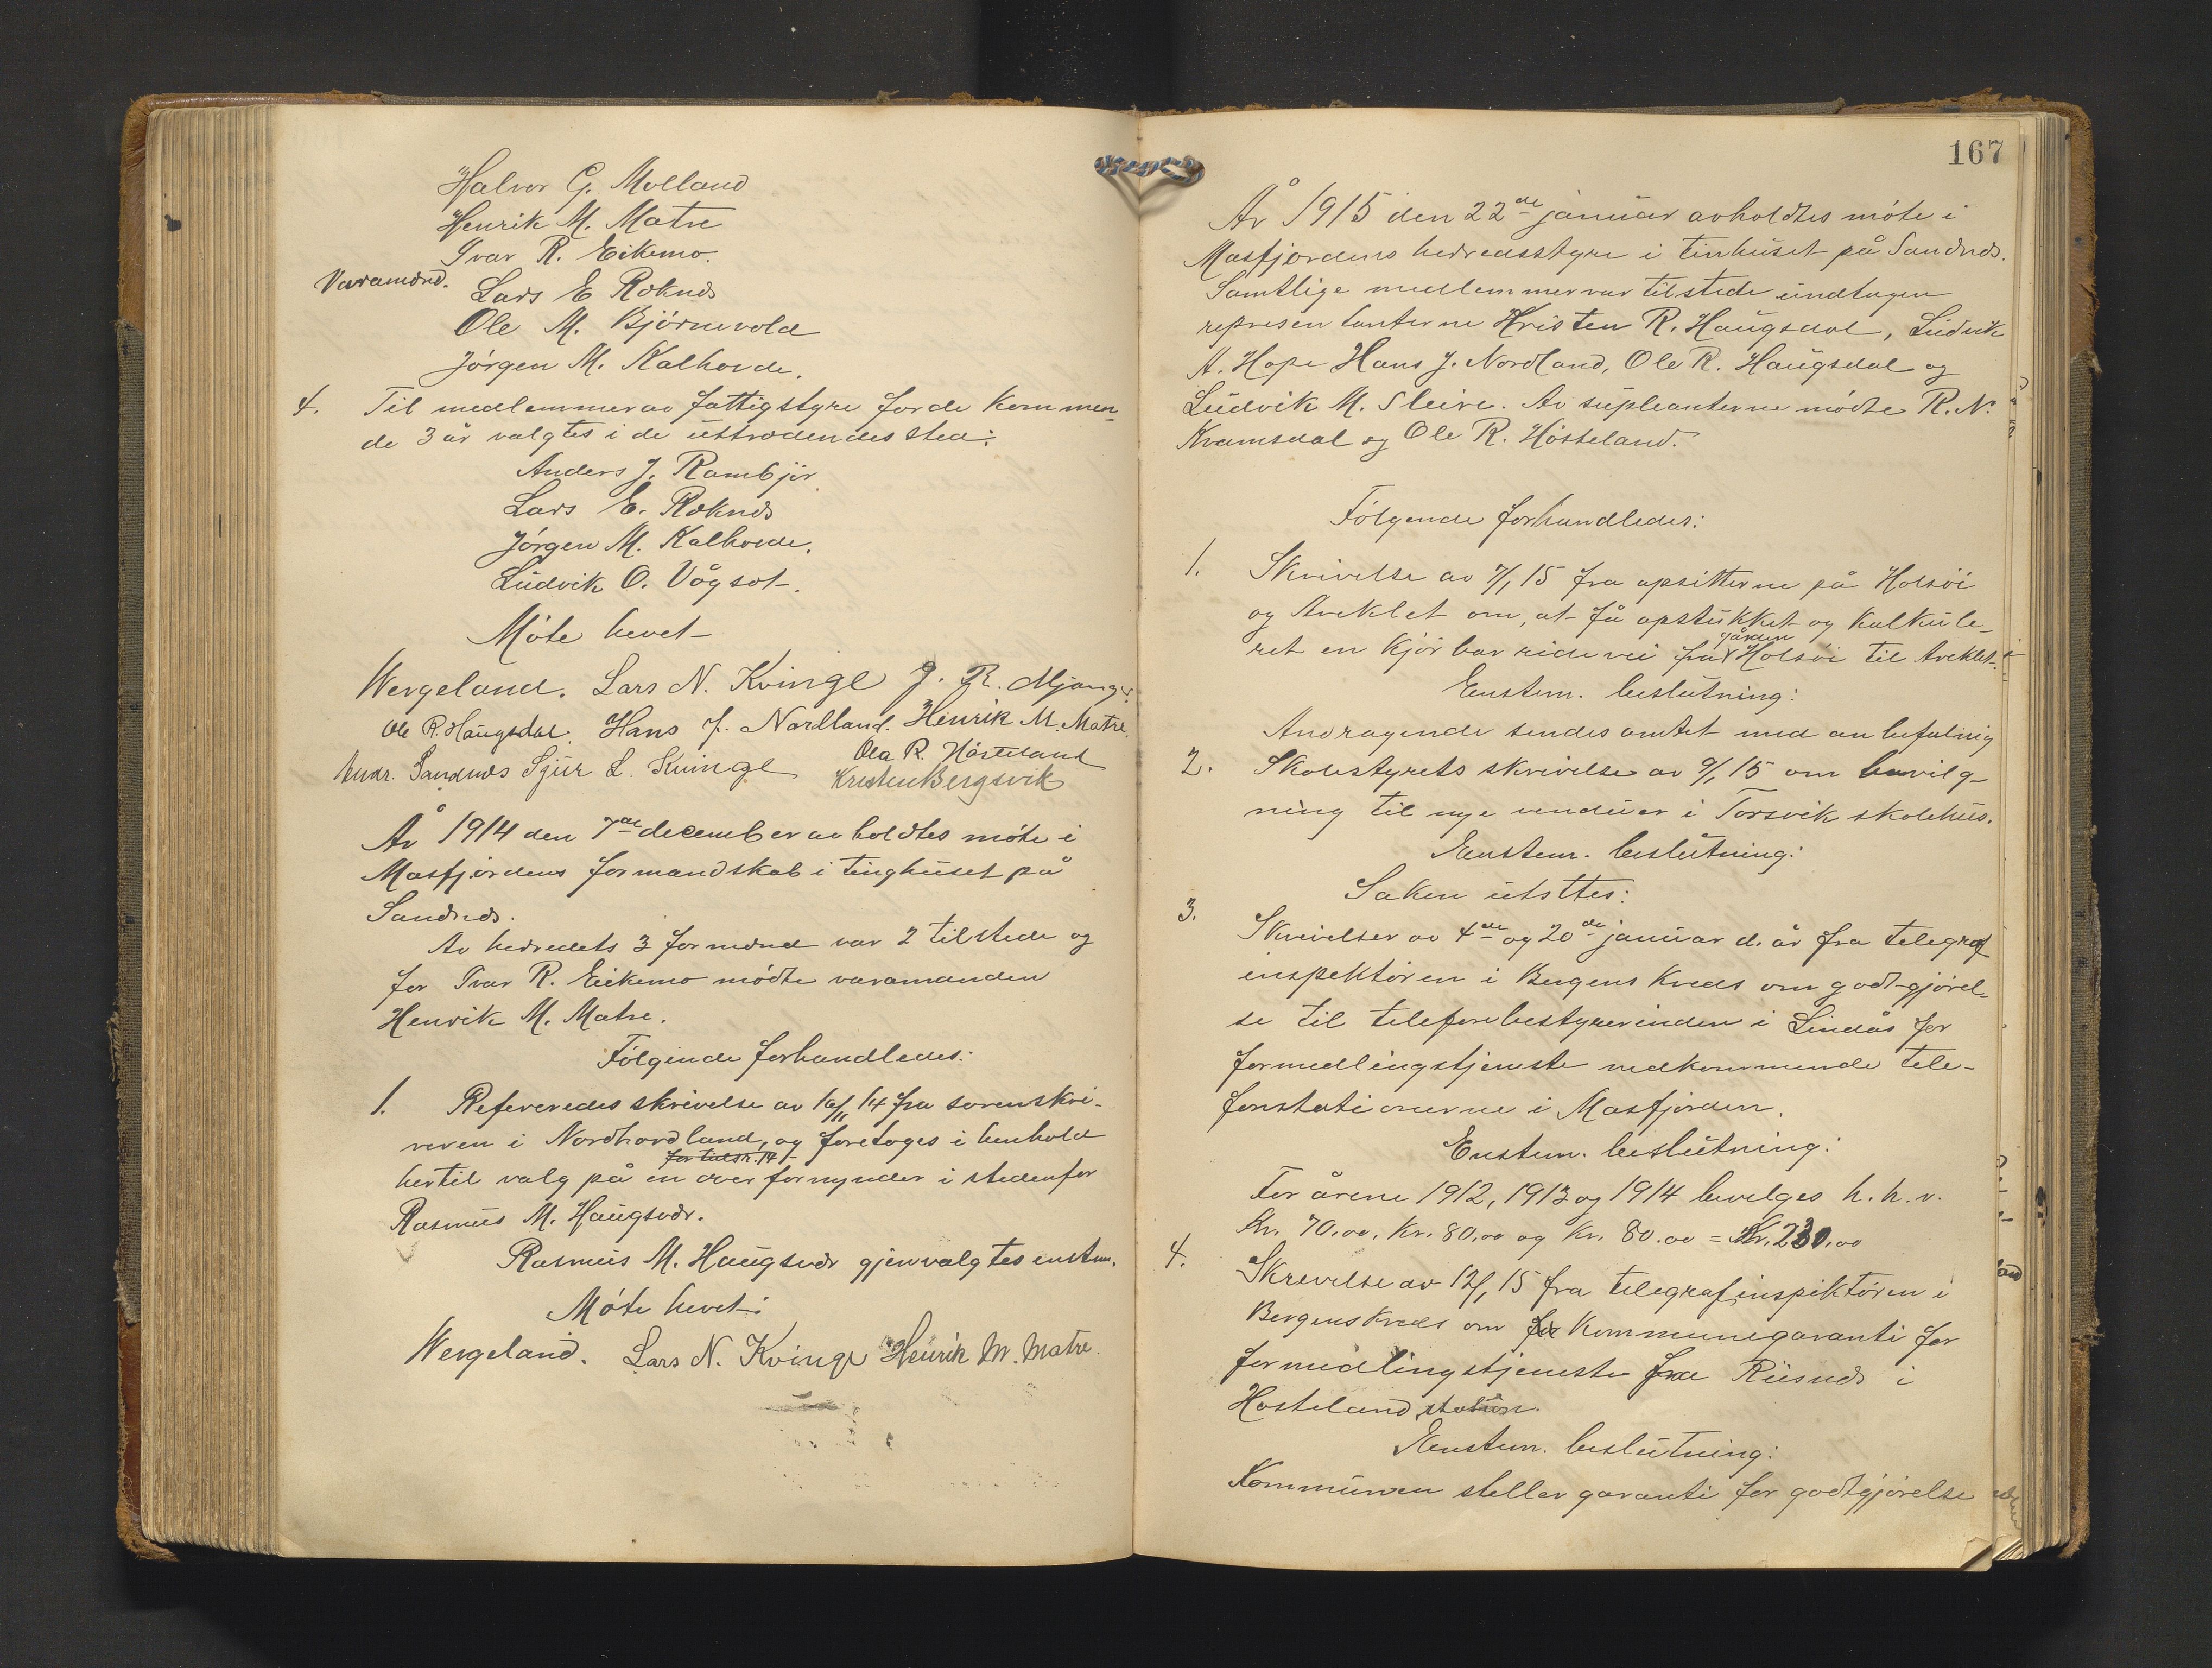 Halvor G. Molland
Henrik M. Matre
Ivar R. Eikemo.
Varamænd. Lars E Røknes
Ole M. Bjørnevold
Jørgen M. Kalhovde.
4. Til medlemmer av fattigstyre for de kommen-
de 3 år valgtes i de uttrædendes sted:
Anders J. Rambjør
Lars E. Røknes
Jørgen M. Kalhovde.
Ludvik O. Vågset.
Møte hevet
Wergeland. Lars N. Kvinge J. R. Mjanger
Ole R. Haugsdal. Hans J. Nordland. Henrik M. Matre.
Andr. Sandnes Sjur L. Kvinge Ola R. Hosteland
Kristen Bergsvik
År 1914 den 7de december avholdtes møte i
Masfjordens formandskab i tinghuset på
Sandnes.
Av herredets 3 formænd var 2 tilstede og
for Ivar R. Eikemo mødte varamanden
Henrik M. Matre.
Følgende forhandledes:
1. Refereredes skrivelse av 16/11 14 fra sorenskri-
veren i Nordhordland, og foretoges i henhold
hertil valg på en overformynder i stedenfor
Rasmus M. Haugsvær.
Rasmus M. Haugsvær gjenvalgtes enstem.
Møte hevet:
Wergeland. Lars N. Kvinge Henrik M. Matre.
167
År 1915 den 22de januar avholdtes møte i
Masfjordens herredsstyre i tinhuset på Sandnes.
Samtlige medlemmer var tilstede undtagen
representanterne Kristen R. Haugsdal, Ludvik
A. Hope Hans J. Nordland, Ole R. Haugsdal og
Ludvik M. Sleire. Av supleanterne mødte R. N.
Kvamsdal og Ole R. Hosteland.
Følgende forhandledes:
1. Skrivelse av 7/1 15 fra opsitterne på Holsøi
og Areklet om, at få opstukket og kalkule-
gården
ret en kjørbar ridevei fra Holsøi til Areklet.
Enstem. beslutning:
Andragende sendes amtet med anbefaling
2. Skolestyrets skrivelse av 9/1 15 om bevilg-
ning til nye vinduer i Torsvik skolehus.
Enstem. beslutning:
Saken utsttes:
3. Skrivelser av 4de og 20de januar d. år fra telegraf
inspektøren i Bergens kreds om godtgjørel-
se til telefonbestyrerinden i Lindås for
formedlingstjeneste vedkommende tele-
fonstationerne i Masfjorden.
Enstem. beslutning:
For årene 1912, 1913 og 1914 bevilges h. h. v.
Kr. 70.00, Kr. 80.00 og Kr. 80.00 = Kr. 230.00
4. Skrivelse av 12/1 15 fra telegrafinspektøren i
Bergens kreds om kommunegaranti for
formedlingstjeneste fra Riisnes i
Hosteland station.
Enstem. beslutning:
Kommunen steller garanti for godtgjørelse